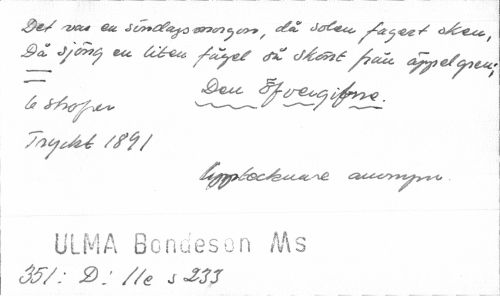 Det var en söndagsmorgon, då solen fagert sken,
Då sjöng en liten fågel så skönt från äppelgren;
Den Öfvergifne.
6 strofer
Tryckt 1891
Upptecknare anonym.
ULMA Bondeson Ms
351: D: 11e s 233